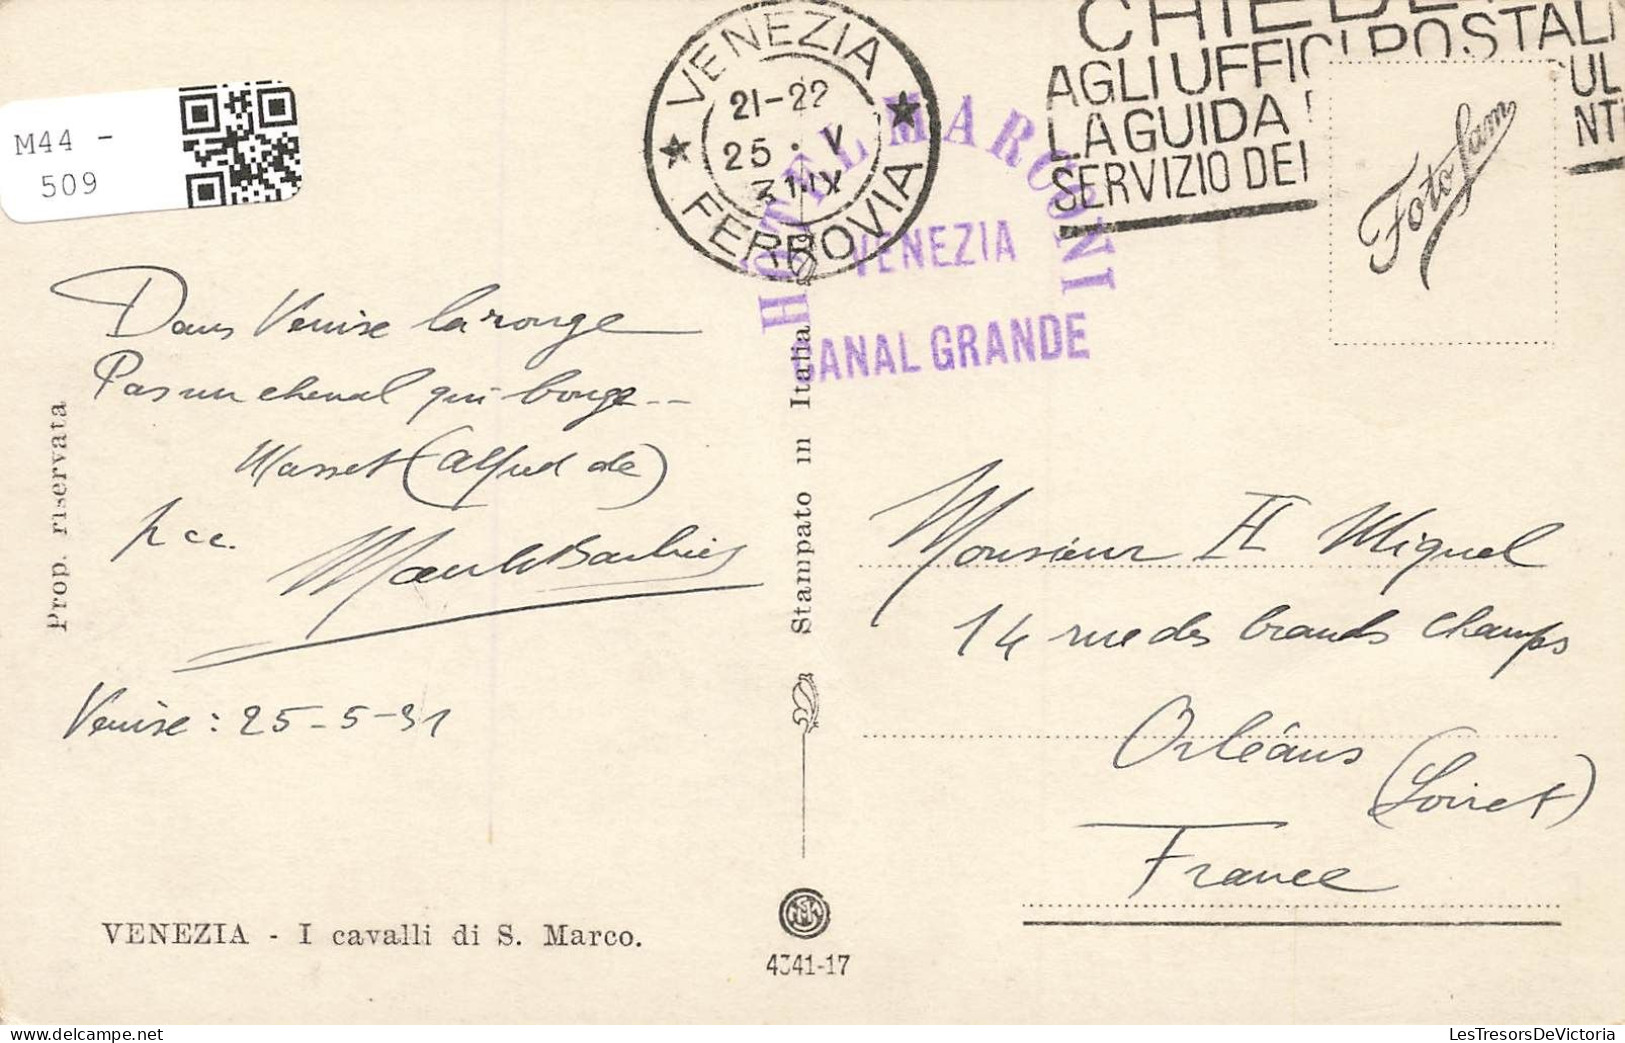 M44 -
509
VENEZIA
21-22
25 · V
31 IX
FERROVIA
HOTEL MARCONI
VENEZIA
CANAL GRANDE
AGLI UFFICI POSTALI
LA GUIDA
SERVIZIO DEI
Foto Sam
Dans Venise la rouge
Pas un cheval qui bouge --
Musset (Alfred de)
p cc.
Venise : 25-5-31
Prop. riservata
Stampato in Italia
Monsieur H Miquel
14 rue des Grands Champs
Orléans
(Loiret)
France
VENEZIA - I cavalli di S. Marco.
4341-17
LesTresorsDeVictoria